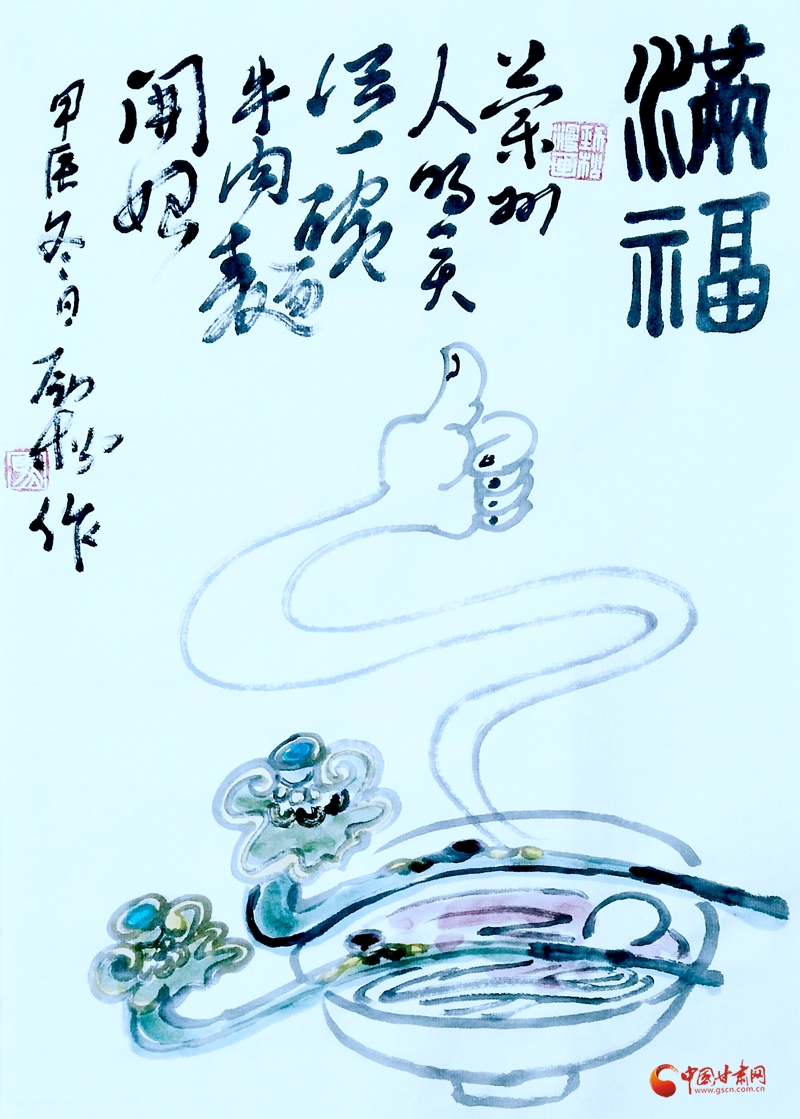 滿福
蘭州
人的一天
從一碗
牛肉麵
開始
甲辰冬日
作
中国甘肃网
www.gscn.com.cn